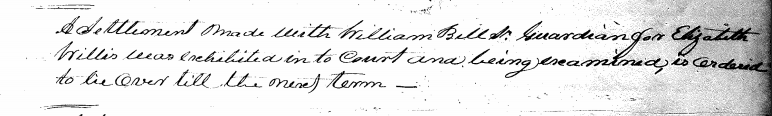 A Settlement made with William Bell Sr. Guardian for Elizabeth
Willis was exhibited in to Court and being examined, is ordered
to lie over till the next term —